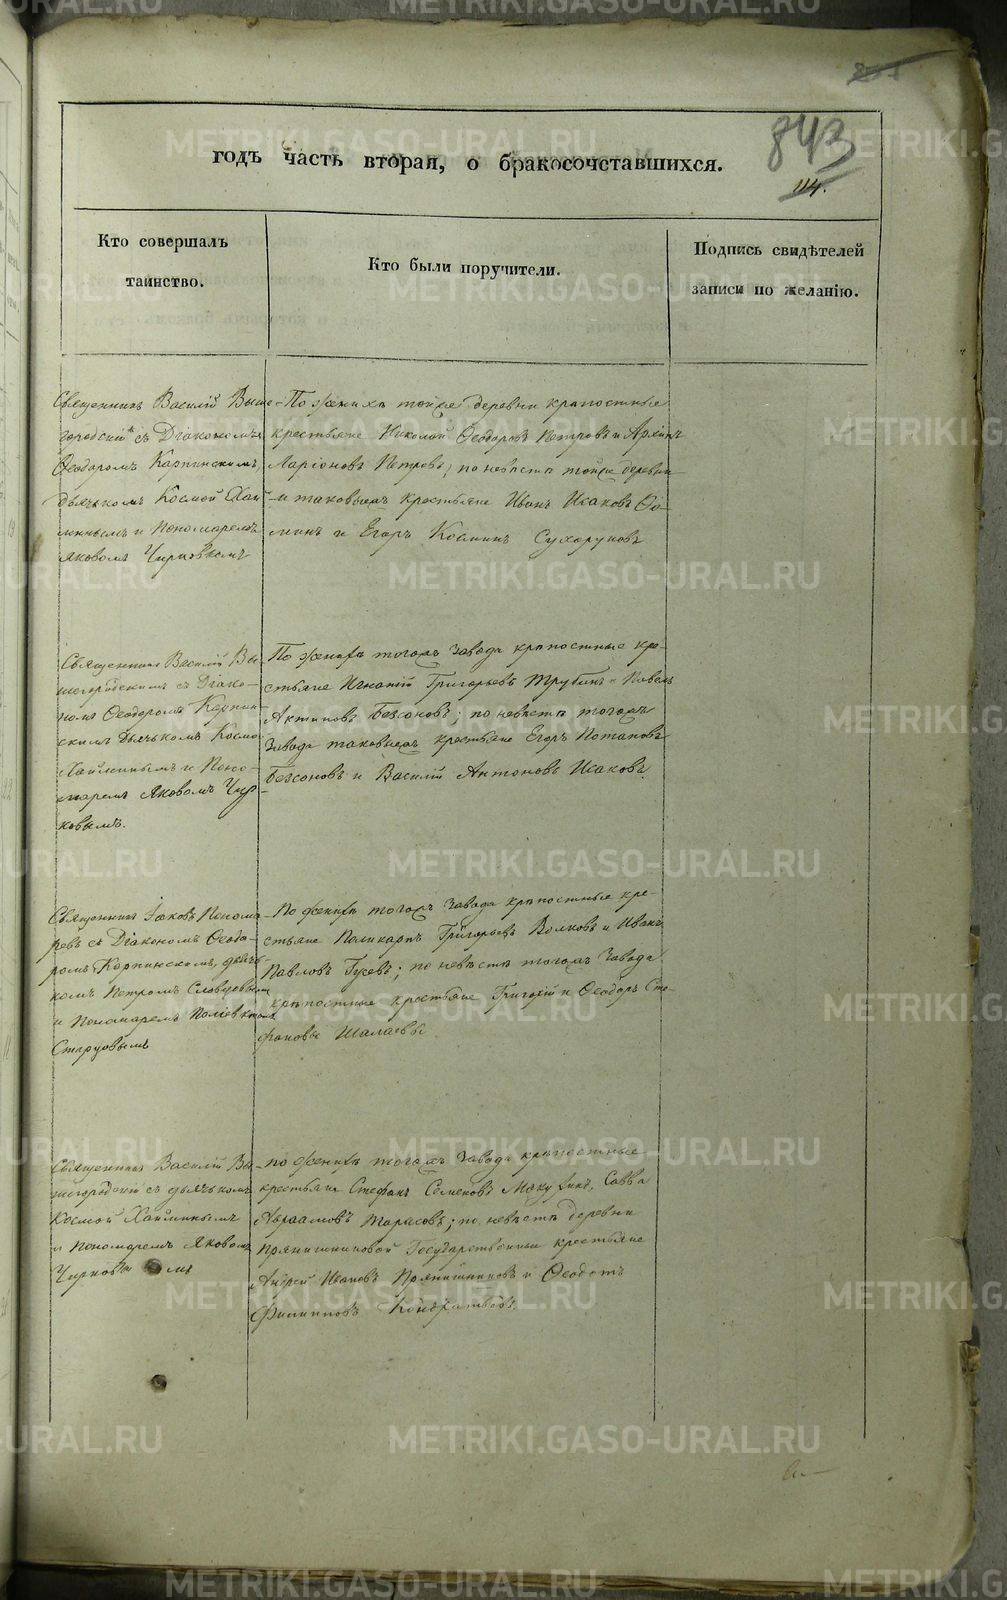 843
114.
годъ часть вторая, о бракосочставшихся.
Кто совершалъ
таинство.
Кто были поручители.
Подпись свидѣтелей
записи по желанію.
Священникъ Василій Выше-
городскій съ Діакономъ
Ѳеодоромъ Карпинскимъ,
дьячкомъ Космой Хай-
минымъ и Пономаремъ
Яковомъ Чирковымъ
По женихѣ тойже деревни крѣпостные
крестьяне Николай Ѳеодоровъ Петровъ и Архипъ
Ларіоновъ Петровъ; по невѣстѣ тойже деревни
и таковыежъ крестьяне Иванъ Исаковъ Ѳо-
минъ и Егоръ Козминъ Сухоруковъ
Священникъ Василій Вы-
шегородскимъ съ Діако-
номъ Ѳеодоромъ Карпин-
скимъ Дьячькомъ Космо
Хайминнымъ и Поно-
маремъ Яковомъ Чир
ковымъ.
По женихѣ тогожъ завода крѣпостные кре-
стьяне Игнатій Григорьевъ Трубинъ и Павелъ
Безсоновъ; по невѣстѣ тогожъ
Завода таковыежъ крестьяне Егоръ Потаповъ
Безсоновъ и Василій Антоновъ Исаковъ.
Священникъ Іаковъ Понома
ревъ съ Діакономъ Ѳеодо-
ромъ Карпинскимъ, дьячь-
комъ Петромъ Словцовымъ
и Пономаремъ Поліевктомъ
Старцовымъ
По женихѣ тогожъ Завода крѣпостные кре-
стьяне Поликарпъ Григорьевъ Волковъ и Иванъ
Павловъ Гусевъ; по невѣстѣ тогожъ Завода
крѣпостные крестьяне Григорій и Ѳеодоръ Сте-
фановы Шалаевы
Священникъ Василій Вы-
шегородскій съ дьячькомъ
Космой Хайминнымъ
и пономаремъ Яковомъ
Чирковымъ
по женихѣ тогожъ Завода крѣпостные
крестьяне Стефанъ Семеновъ Макухинъ, Савва
Авраамовъ Тарасовъ; по невѣстѣ деревни
Прянишниковой Государственные крестьяне
Андрей Ивановъ Прянишниковъ и Ѳеодотъ
Филипповъ Кондратьевъ.
METRIKI.GASO-URAL.RU